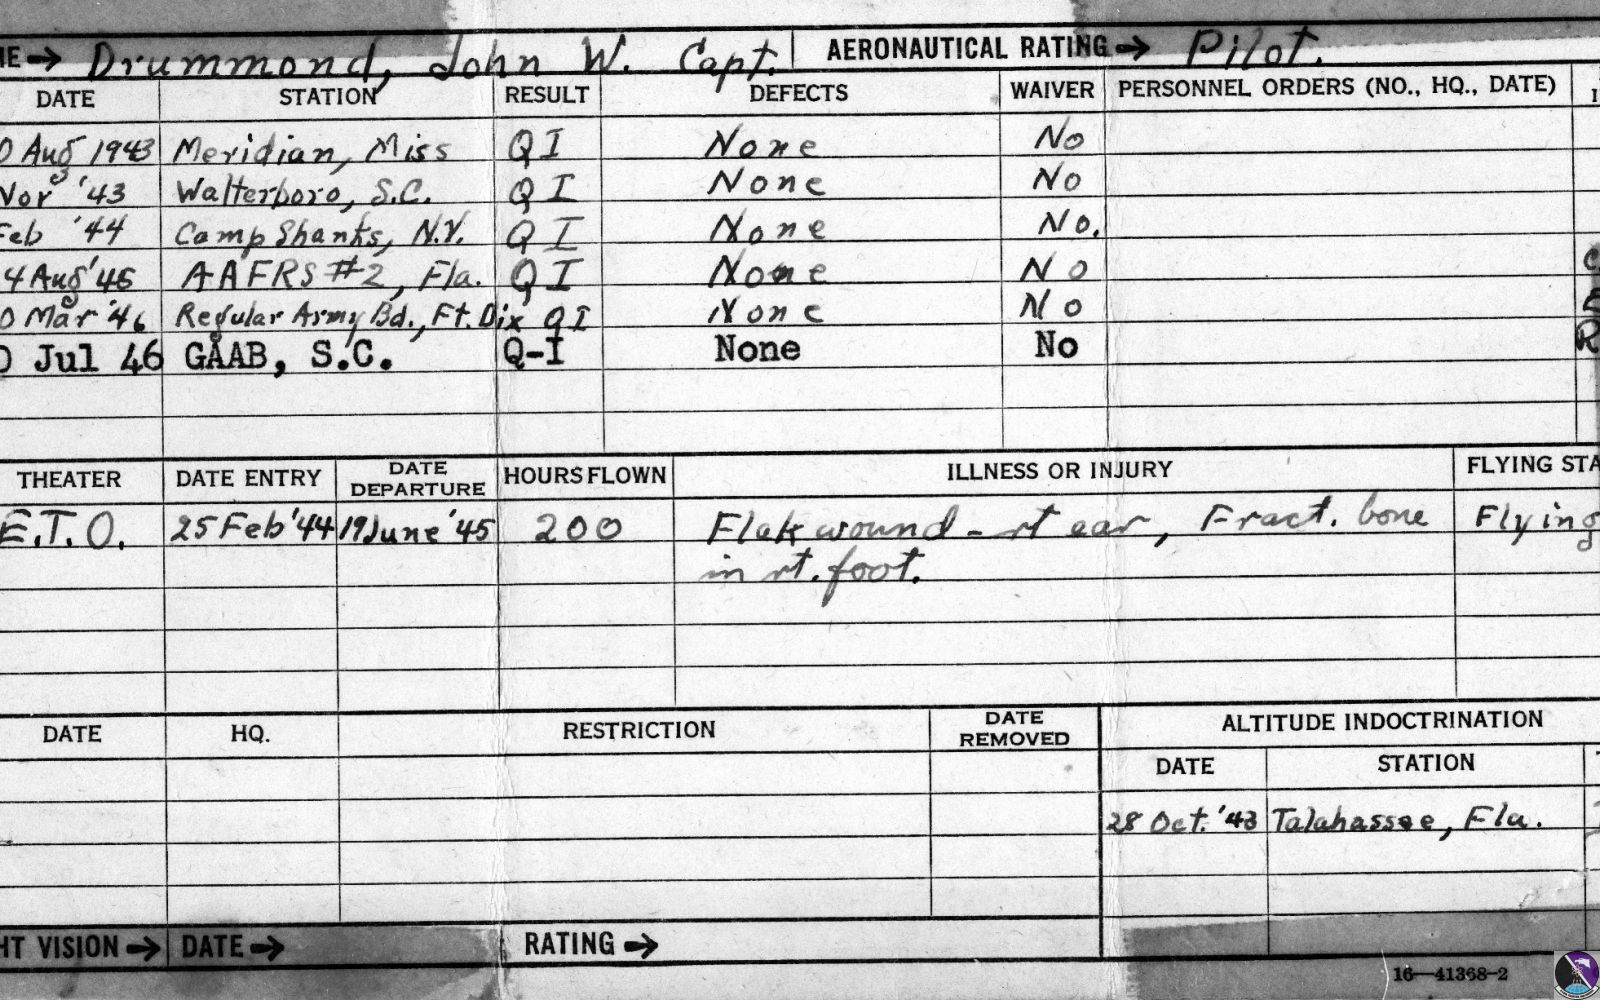 ME → Drummond, John W. Capt. AERONAUTICAL RATING → Pilot.
DATE STATION RESULT DEFECTS WAIVER PERSONNEL ORDERS (NO., HQ., DATE) I
0 Aug 1943 Meridian, Miss QI None No
Nov '43 Walterboro, S.C. QI None No
Feb '44 Camp Shanks, N.Y. QI None No.
4 Aug '45 AAFRS #2, Fla. QI None No
0 Mar '46 Regular Army Bd., Ft. Dix QI None No
0 Jul 46 GAAB, S.C. Q-I None No
THEATER DATE ENTRY DATE DEPARTURE HOURS FLOWN ILLNESS OR INJURY FLYING STA
E.T.O. 25 Feb '44 19 June '45 200 Flak wound - rt ear, Fract. bone Flying
in rt. foot.
DATE HQ. RESTRICTION DATE REMOVED ALTITUDE INDOCTRINATION
DATE STATION
28 Oct. '43 Talahassee, Fla.
HT VISION → DATE → RATING →
16—41368-2